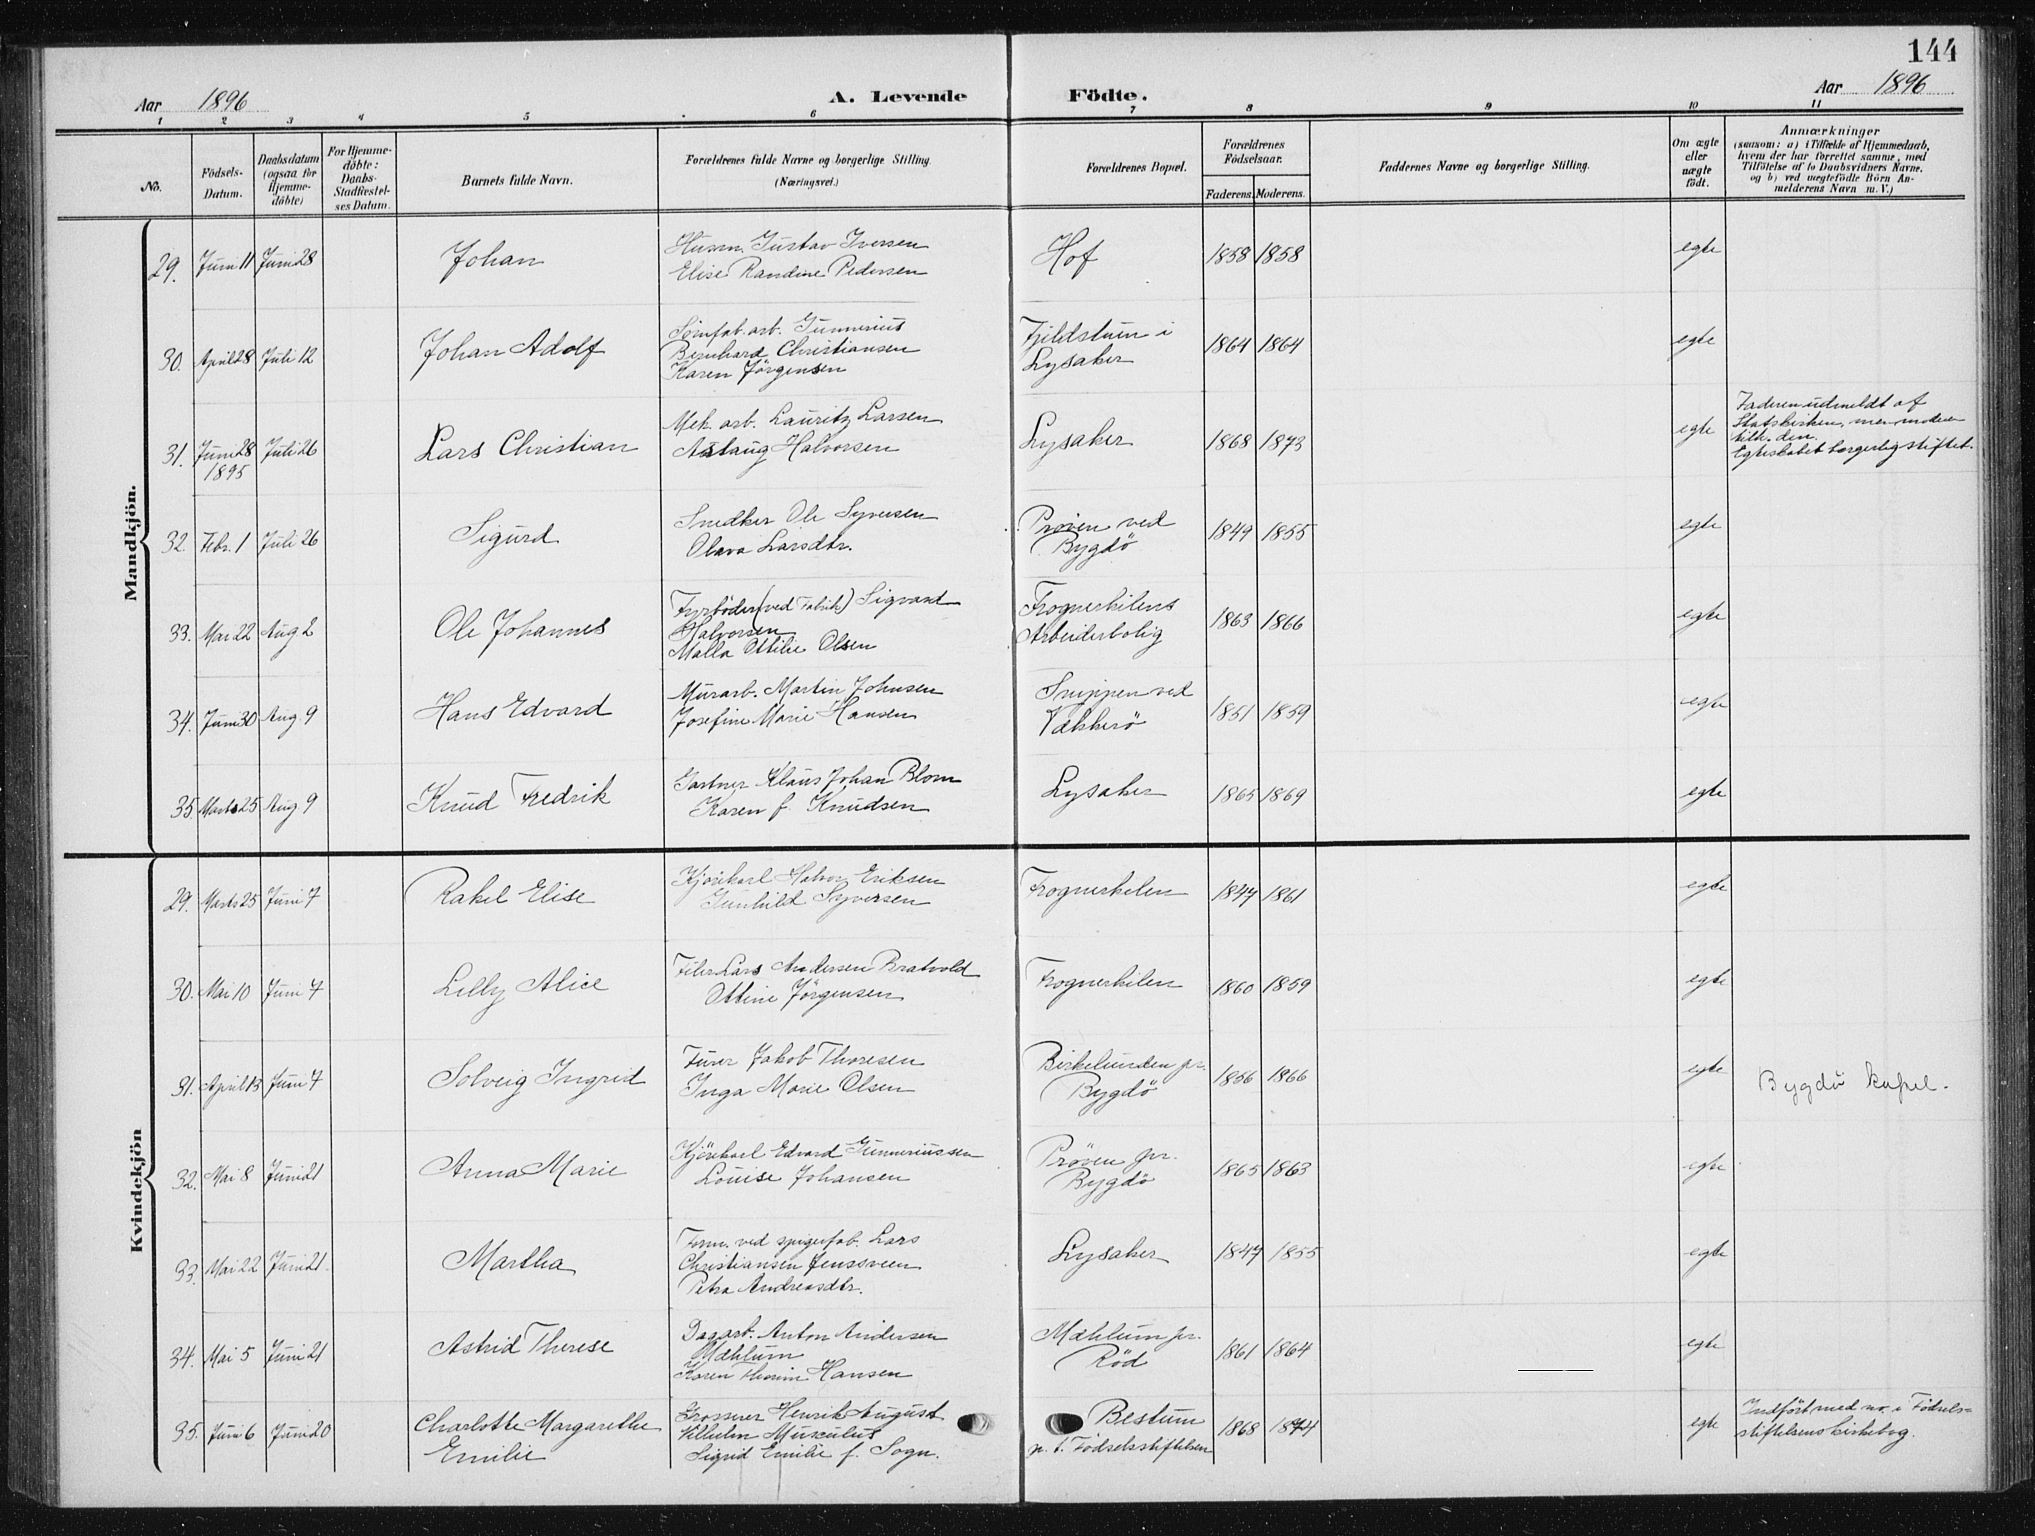 144
Aar 1896 A. Levende Födte. Aar 1896
1 2 3 4 5 6 7 8 9 10 11
No. Födsels-Datum. Daabsdatum (ogsaa for Hjemme-döbte) For Hjemme-döbte: Daabs-Stadfæstel-ses Datum. Barnets fulde Navn. Forældrenes fulde Navne og borgerlige Stilling. (Næringsvei.) Forældrenes Bopæl. Forældrenes Födselsaar. Faderens. Moderens. Faddernes Navne og borgerlige Stilling. Om ægte eller uægte födt. Anmærkninger (saasom: a) i Tilfælde af Hjemmedaab, hvem der har forrettet samme, med Tilföielse af to Daabsvidners Navne, og b) ved uægtefödte Börn An-melderens Navn m. V.)
Mandkjön.
29. Juni 11 Juni 28 Johan Husm. Gustav Iversen Hof 1858 1858 egte
Elise Randine Pedersen
30. April 28 Juli 12 Johan Adolf Sömfab. arb. Gunnerius Fjeldstuen i 1864 1864 egte
Bernhard Christiansen Lysaker
Karen Jörgensen
31. Juni 28 Juli 26 Lars Christian Mek. arb. Lauritz Larsen Lysaker 1868 1873 egte Faderen udmeldt af
1895 Aslaug Halvorsen Statskirken, men moderen
tilh. den.
Egteskabet borgerlig stiftet.
32 Febr. 1 Juli 26 Sigurd Snedker Ole Syversen Pröven ved 1849 1855 egte
Olava Larsdtr. Bygdö
33. Mai 22 Aug 2 Ole Johannes Fyrböder (ved Fabrik) Sigvard Frognerkilens 1863 1866 egte
Halvorsen Arbeiderbolig
Malla Ottilie Olsen
34. Juni 30 Aug 9 Hans Edvard Murarb. Martin Johnsen Snippen ved 1851 1859 egte
Josefine Marie Hansen Vækkerö
35. Marts 25 Aug 9 Knud Fredrik Gartner Klaus Johan Blom Lysaker 1865 1869 egte
Karen f. Knudsen
Kvindekjön
29. Marts 25 Juni 7 Rakel Elise Kjörekarl Halvor Eriksen Frognerkilen 1847 1861 egte
Gunhild Syversen
30. Mai 10 Juni 7 Lilly Alice Filer Lars Andersen Bratvold Frognerkilen 1860 1859 egte
Ottine Jörgensen
31. April 13 Juni 7 Solveig Ingrid Furer Jakob Thoresen Birkelunden pr. 1856 1866 egte Bygdö kapel.
Inga Marie Olsen Bygdö
32. Mai 8 Juni 21 Anna Marie Kjörekarl Edvard Gunneriussen Pröven pr. 1865 1863 egte
Louise Johansen Bygdö
33. Mai 22 Juni 21. Martha Form. ved spigerfab. Lars Lysaker 1847 1855 egte
Christiansen Jenssveen
Petra Andreasdtr.
34. Mai 5 Juni 21 Astrid Therese Dagarb. Anton Andersen Mæhlum pr. 1861 1864 egte
Mæhlum Röd
Karen Thorine Hansen
35. Juni 6 Juni 20 Charlotte Margarethe Grosserer Henrik August Bestum 1868 1874 egte Indfört med no. i Födsels-
Emilie Vilhelm Musculus p. t. Födselsstiftelsen stiftelsens kirkebog.
Sigrid Emilie f. Sogn.